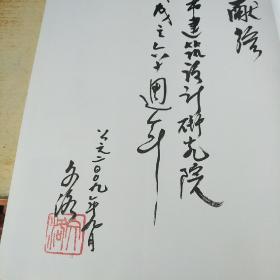 献给
市建筑设计研究院
成立六十週年
公元二〇〇九年九月